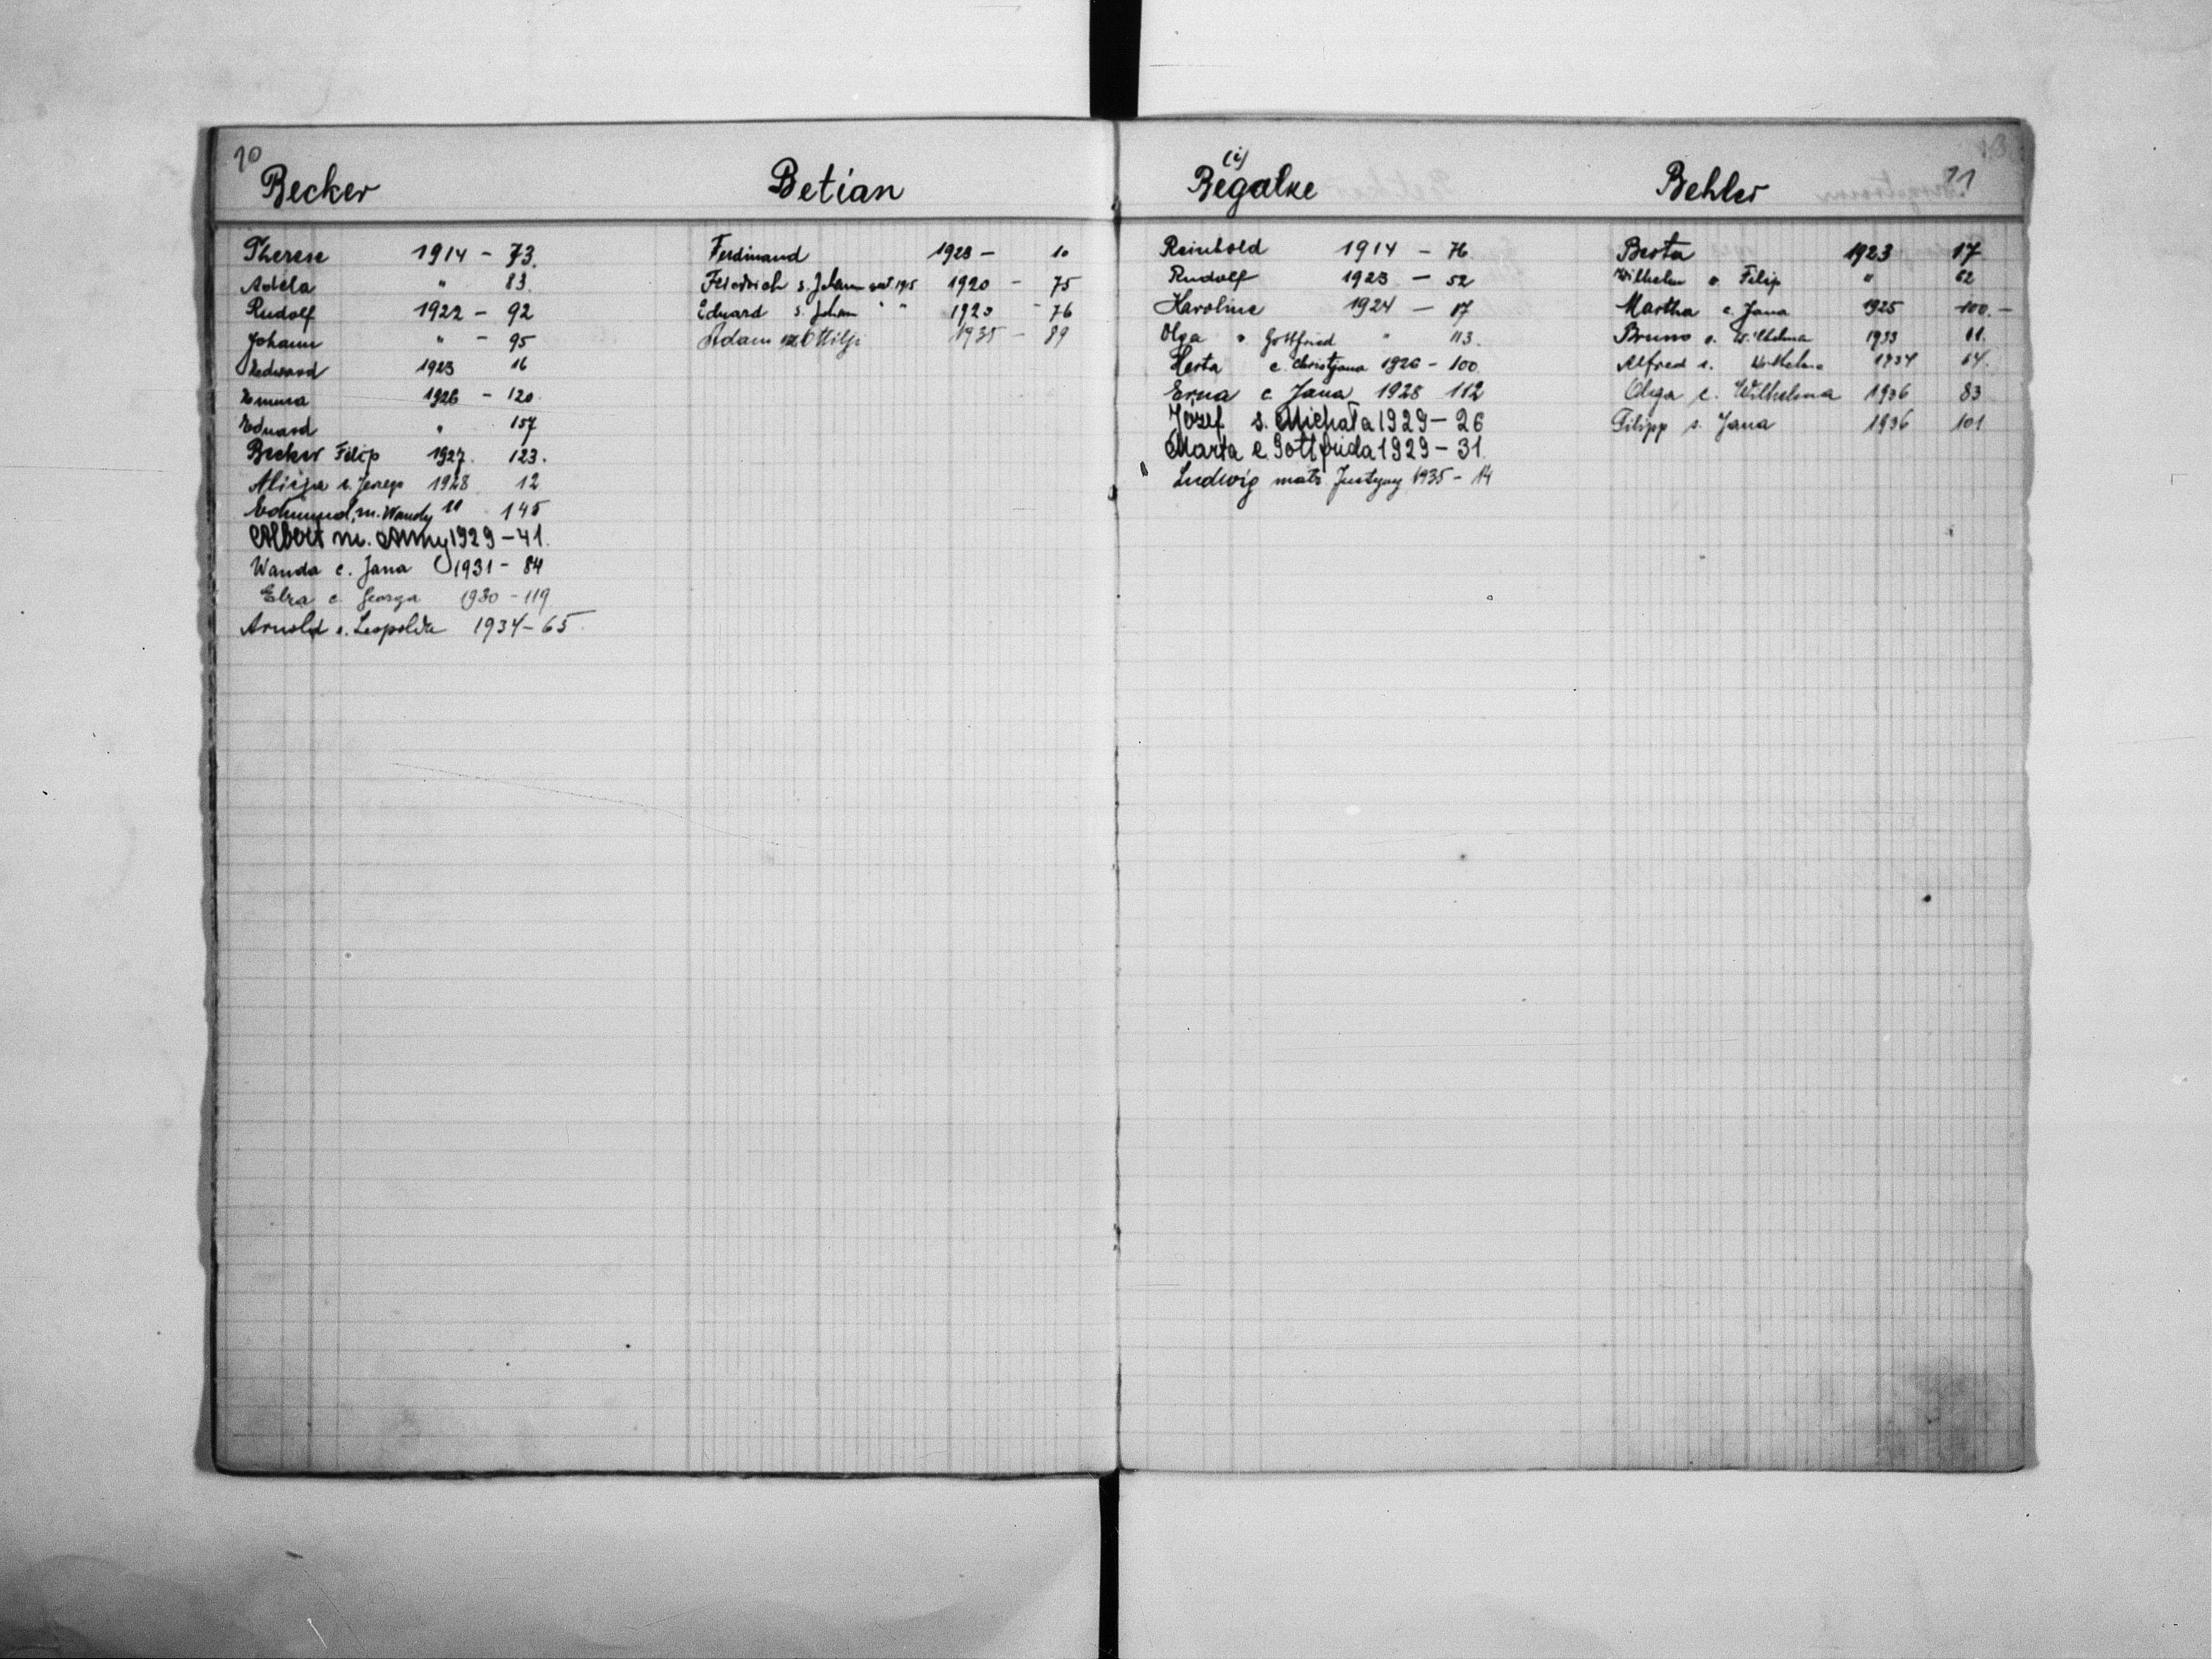 10
Becker
Therese 1914 - 73.
Adela " 83.
Rudolf 1922 - 92
Johann " - 95
1923 16
Emma 1926 - 120
Eduard " 157
Becker Filip 1927. 123.
Alicja 1928 12
Edmund, m. Wandy " 145
Albert m. Anny 1929 - 41.
Wanda c. Jana 1931 - 84
Elza c. Georga 1930 - 119
Arnold s. Leopolda 1934 - 65
Betian
Ferdinand 1923 - 10
Friedrich s. Johann 1915 1920 - 75
Eduard s. Johann " " 1920 - 76
Adam Ottilji 1935 - 89
(i)
Begalke
Reinhold 1914 - 76
Rudolf 1923 - 52
Karoline 1924 - 17
Olga Gottfried " 113.
Herta c. Christjana 1926 - 100
Erna c. Jana 1928 112
Józef s. Michała 1929 - 26
Marta c. Gottfrida 1929 - 31
Ludwig matr. Justyny 1935 - 14
11
Behler
Berta 1923 17
Wilhelm Filip " 62
Martha c. Jana 1925 100. -
Bruno s. Wilhelma 1933 11.
Alfred s. Wilhelma 1934 64.
Olga c. Wilhelma 1936 83
Filipp s. Jana 1936 101